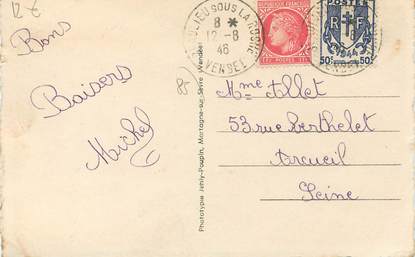 12 €
Bons
Baisers
Michel
85
Phototype Jehly-Poupin, Mortagne-sur-Sèvre (Vendée)
SOUS LA ROCHE
8 *
12-8
46
VENDEE
POSTES
RF
50c 50c
Mme Allet
53 rue Berthelet
Arcueil
Seine